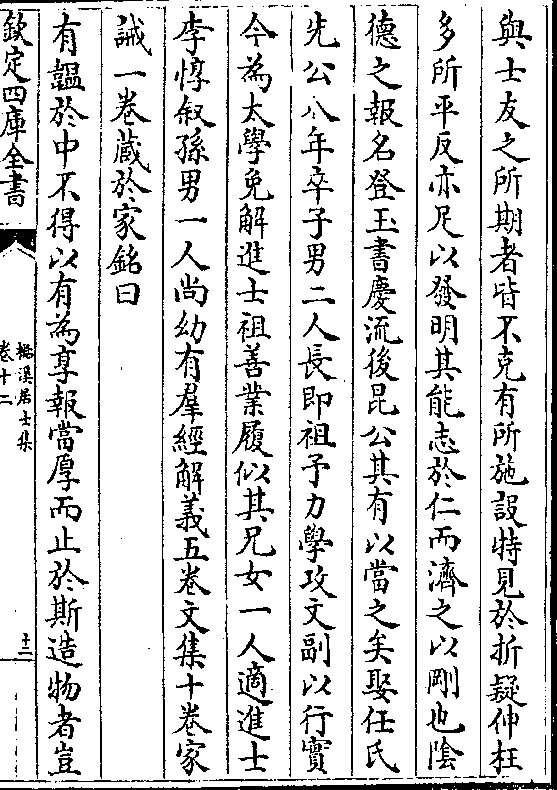 與士友之所期者皆不克有所施設特見於折疑伸枉
多所平反亦足以發明其能志於仁而濟之以剛也隂
德之報名登玉書慶流後昆公其有以當之矣娶任氏
先公八年卒子男二人長即祖予力學攻文副以行實
今為太學免解進士祖善業履似其兄女一人適進士
李惇叙孫男一人尚幼有羣經解義五卷文集十卷家
誡一卷藏於家銘曰
有韞於中不得以有為享報當厚而止於斯造物者豈
欽定四庫全書
卷十二
溪居士集
十三